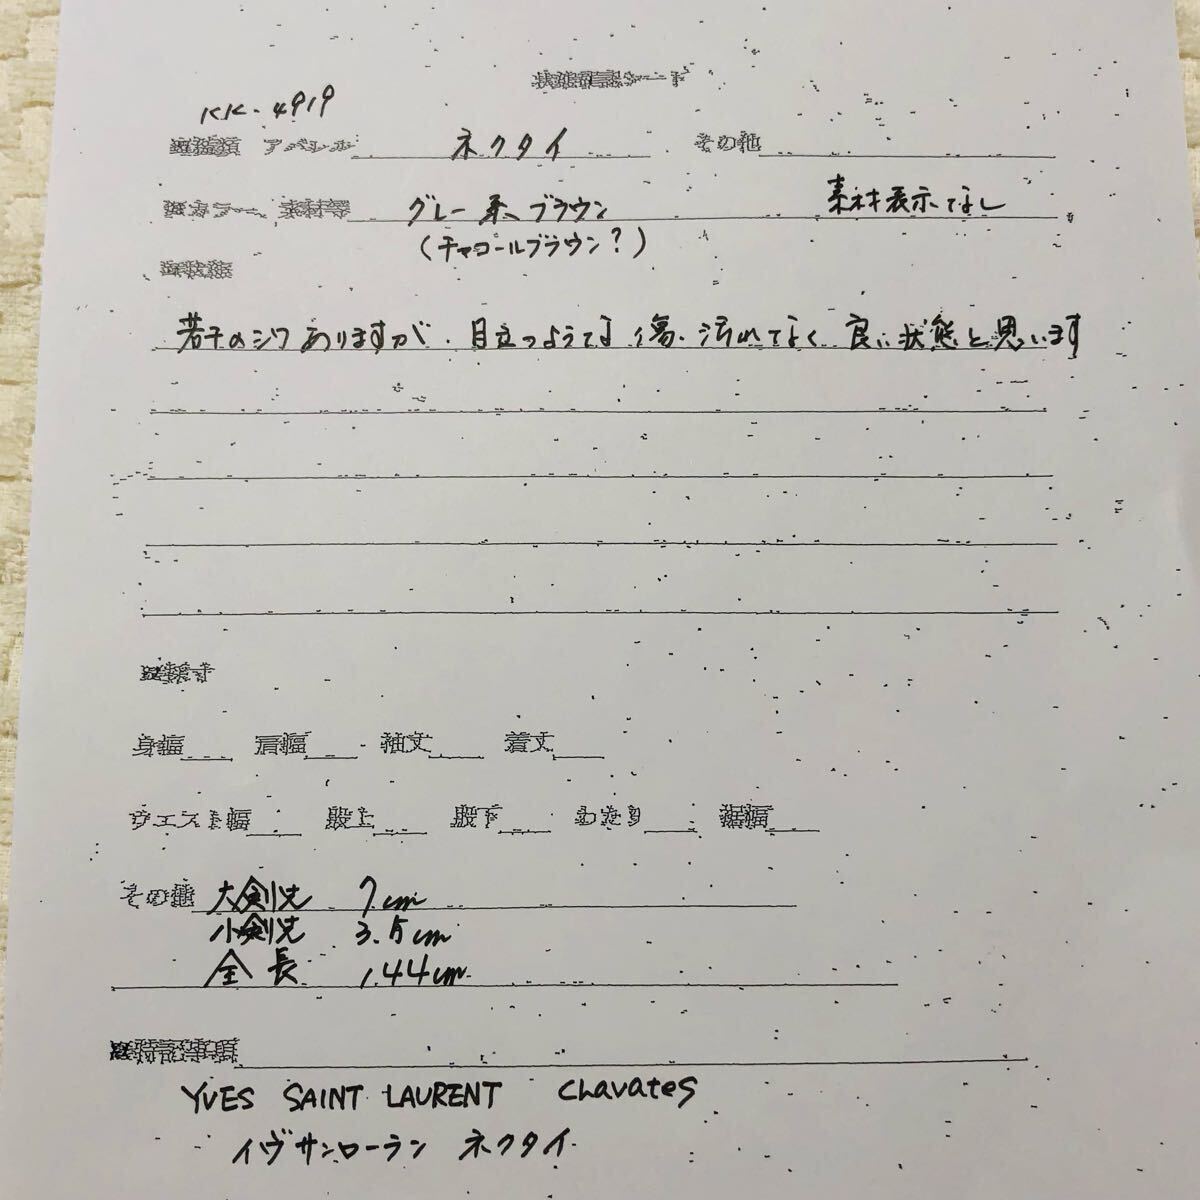 状態確認シート
KK-4919
アパレル ネクタイ その他
カラー、素材等 グレー系、ブラウン 素材表示なし
(チャコールブラウン?)
状態
若干のシワありますが、目立つような傷、汚れてなく良い状態と思います
採寸
身幅 肩幅 袖丈 着丈
ウエスト幅 股上 股下 わたり 裾幅
その他 大剣先 7cm
小剣先 3.5cm
全長 144cm
特記事項
YVES SAINT LAURENT Chavates
イヴサンローラン ネクタイ